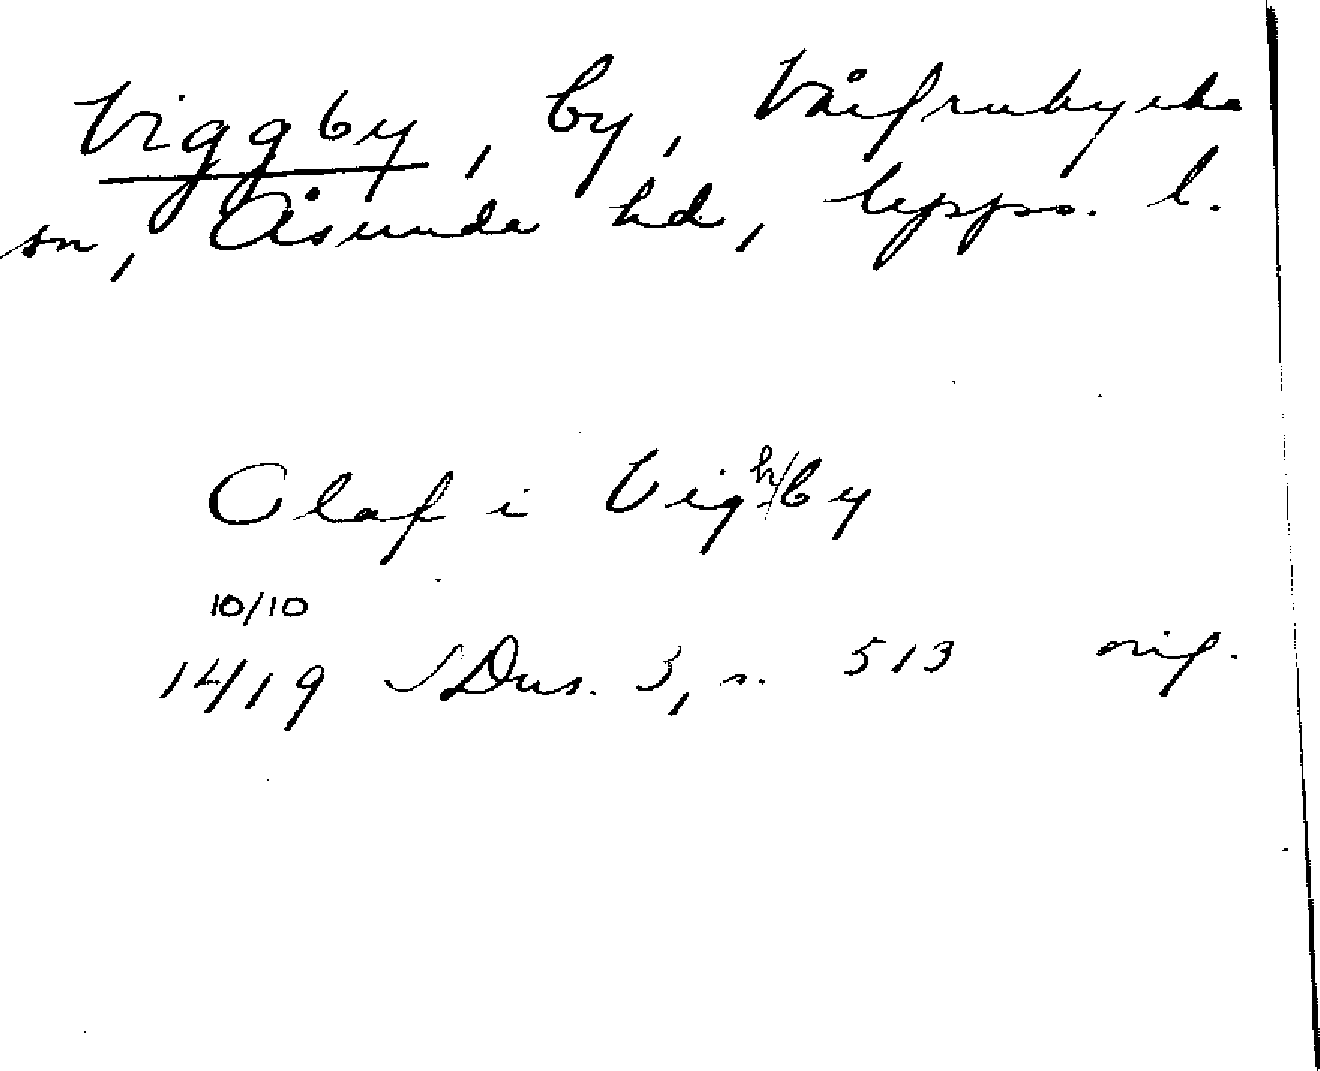 Viggby, by, Vårfrukyrka
sn, Åsunda hd, Upps. l.
Olaf i Vighby
10/10
1419 SDns. 3, s. 513 orig.